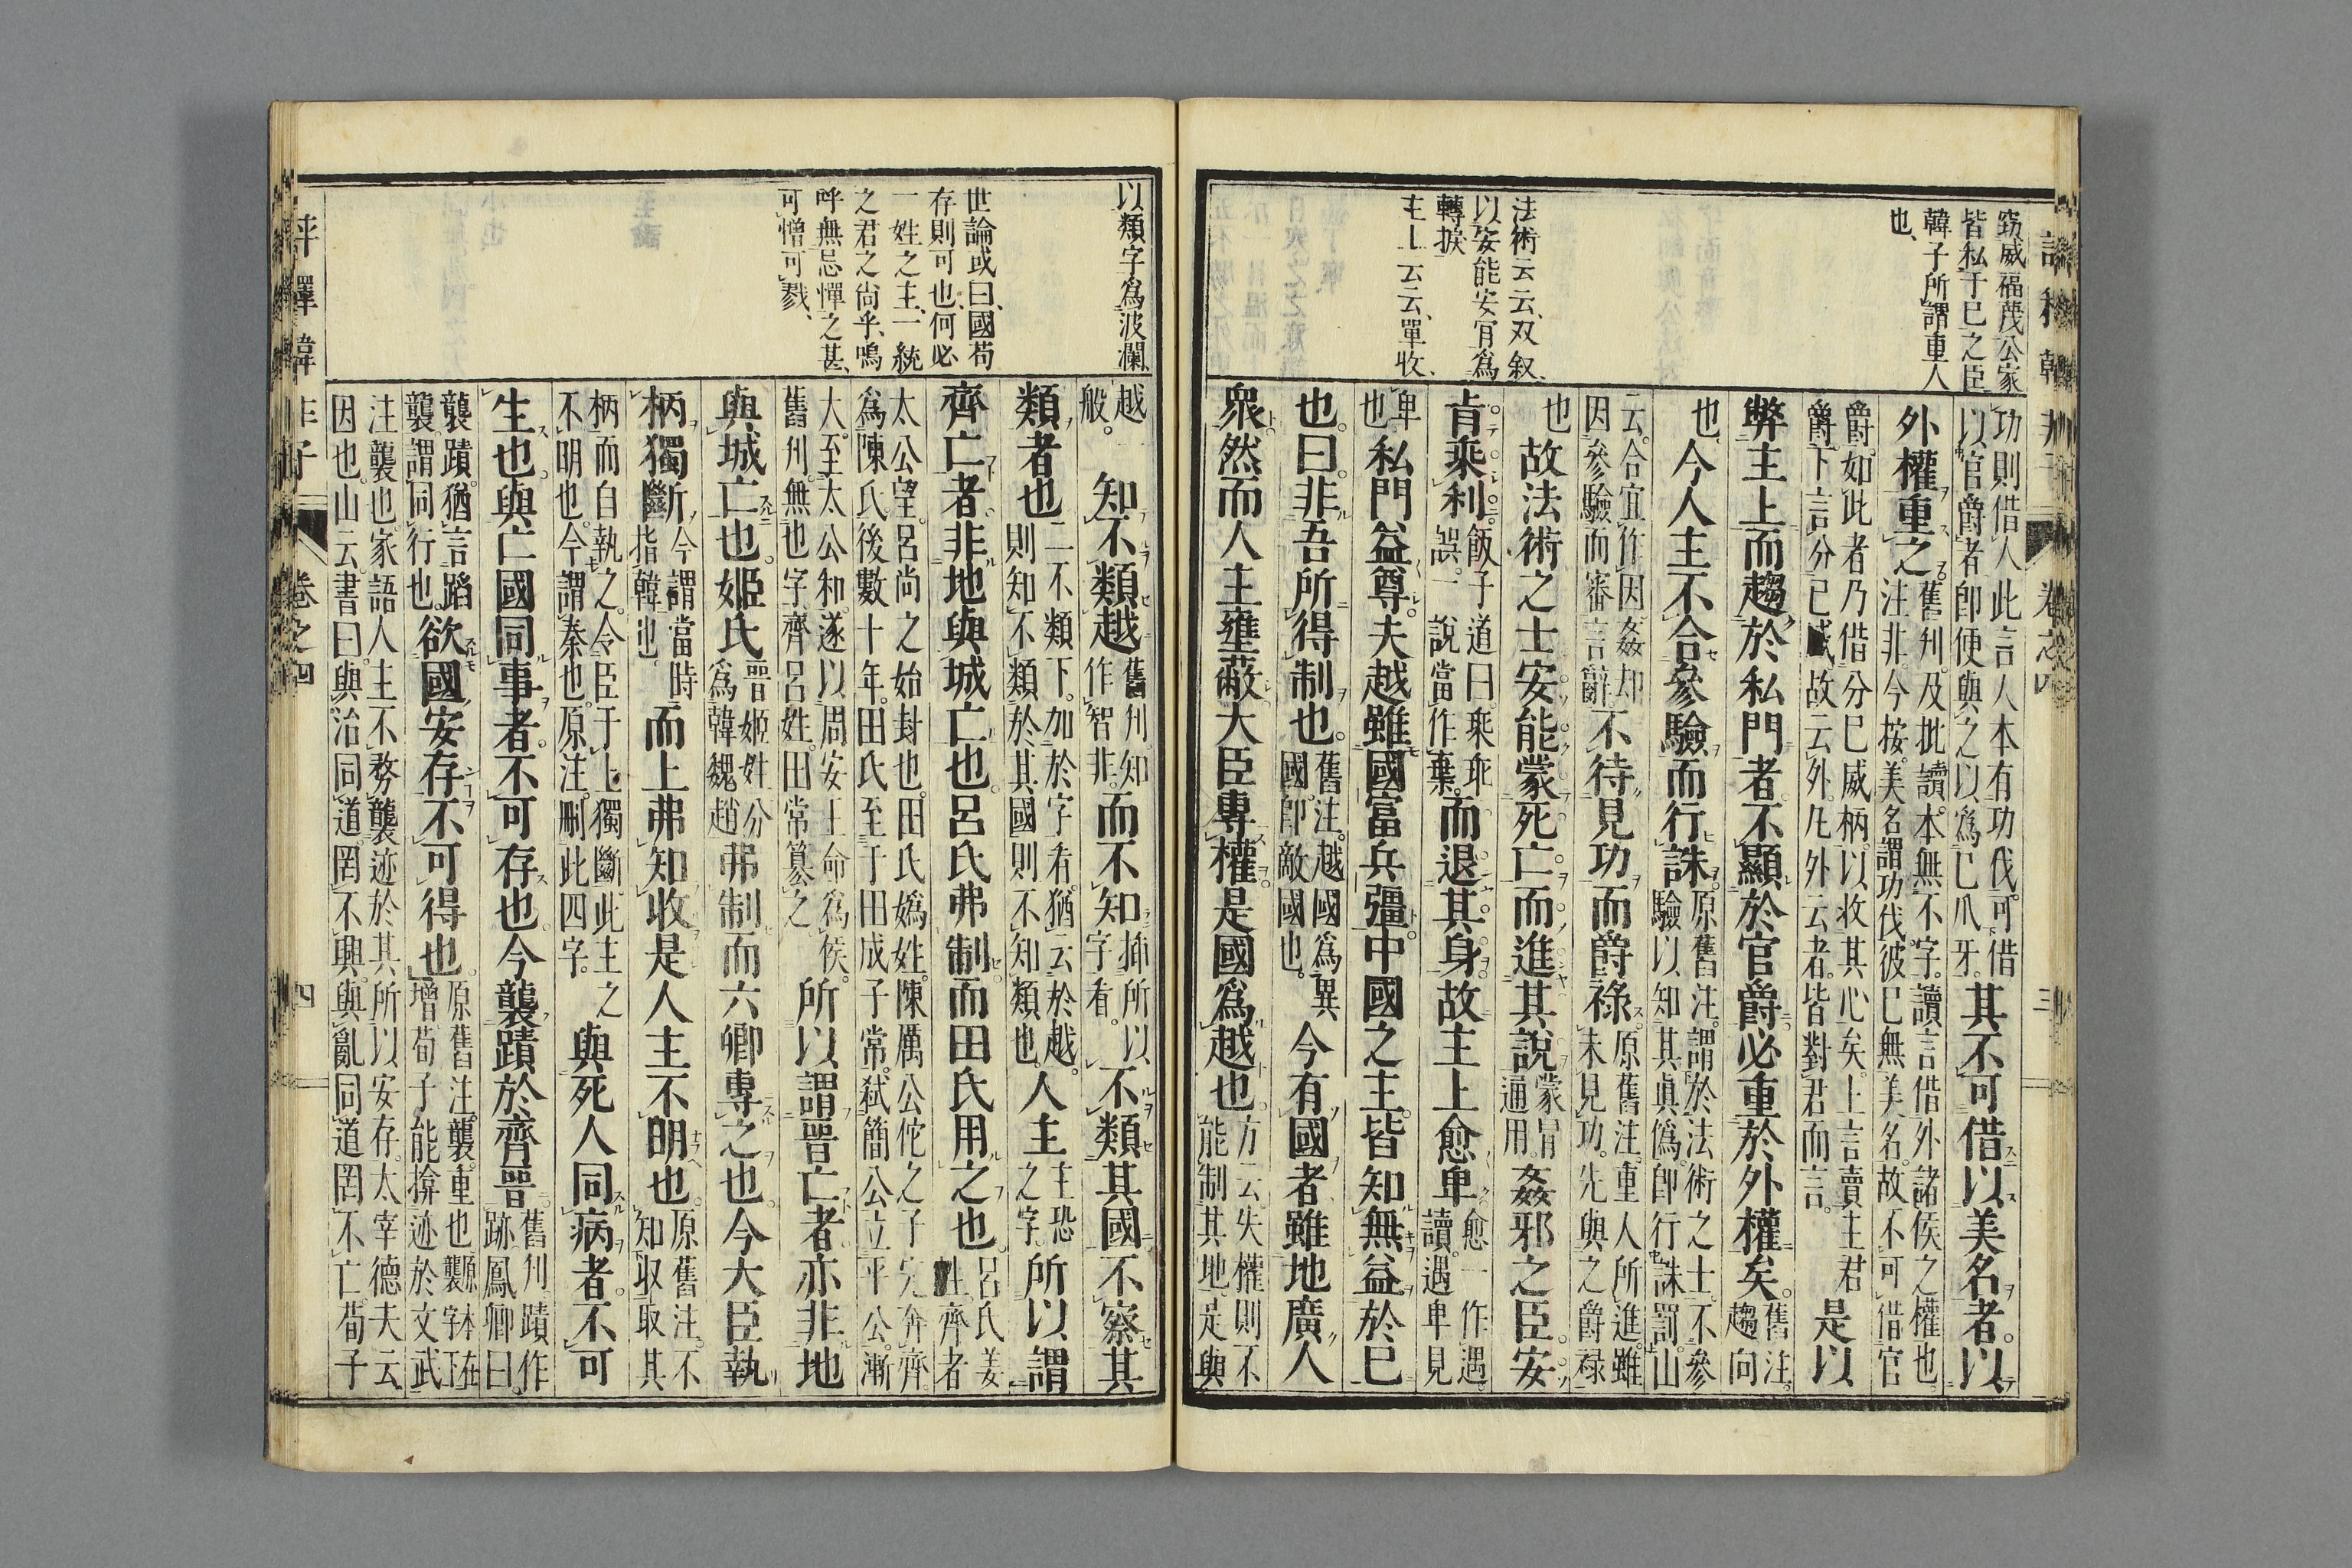 竊威福蔑公家
皆私于己之臣
韓子所謂重人
也
法術云云双叙
以安能安肯為
轉捩
主上云云單收
功則借人此言人本有功伐可借
以官爵者即便與之以為己爪牙
其不可借以美名者以
外權重之
舊刋及批讀本無不字讀言借外諸侯之權也
注非今按美名謂功伐彼已無美名故不可借官
爵如此者乃借分已威柄以收其心矣上言賣主君
爵下言分已威故云外凡外云者皆對君而言
是以
弊主上而趨於私門者不顯於官爵必重於外權矣
舊注
趨向
也
今人主不合參驗而行誅
原舊注謂於法術之士不參
驗以知其眞僞即行誅罰山
云合宜作因姦却
因參驗而審言辭
不待見功而爵祿
原舊注重人所進雖
未見功先與之爵禄
也
故法術之士安能蒙死亡而進其說
蒙冒
通用
姦邪之臣安
肯乘利
飯子道曰乘乖
誤一說當作棄
而退其身故主上愈卑
愈一作遇
讀遇卑見
卑
也
私門益尊夫越雖國富兵彊中國之主皆知無益於已
也曰非吾所得制也
舊注越國為異
國即敵國也
今有國者雖地廣人
衆然而人主壅蔽大臣專權是國為越也
方云失權則不
能制其地是與
以類字為波瀾
世論或曰國苟
存則可也何必
一姓之主一統
之君之尚乎嗚
呼無忌憚之甚
可憎可戮
越一
般
知不類越
舊刋知
作智非
而不知
揷所以
字看
不類其國不察其
類者也
二不類下加於字看猶云於越
則知不類於其國則不知類也
人主
主恐
之字
所以謂
齊亡者非地與城亡也呂氏弗制而田氏用之也
呂氏姜
姓齊者
太公望呂尚之始封也田氏嬀姓陳厲公佗之子完奔齊
為陳氏後數十年田氏至于田成子常弑簡公立平公漸
大至太公和遂以周安王命為侯
舊刋無也字齊呂姓田常簒之
所以謂晋亡者亦非地
與城亡也姬氏
晋姬姓分
為韓魏趙
弗制而六卿專之也今大臣執
柄獨斷
今謂當時
指韓也
而上弗知收是人主不明也
原舊注不
知収取其
柄而自執之令臣于上獨斷此主之
不明也今謂秦也原注刪此四字
與死人同病者不可
生也與亡國同事者不可存也今襲蹟於齊晋
舊刋蹟作
跡鳳卿曰
襲蹟猶言蹈
襲謂同行也
欲國安存不可得也
原舊注襲重也
增荀子能揜迹於文武
注襲也家語人主不務襲迹於其所以安存太宰德夫云
因也山云書曰與治同道罔不興與亂同道罔不亡荀子
卷之四
四